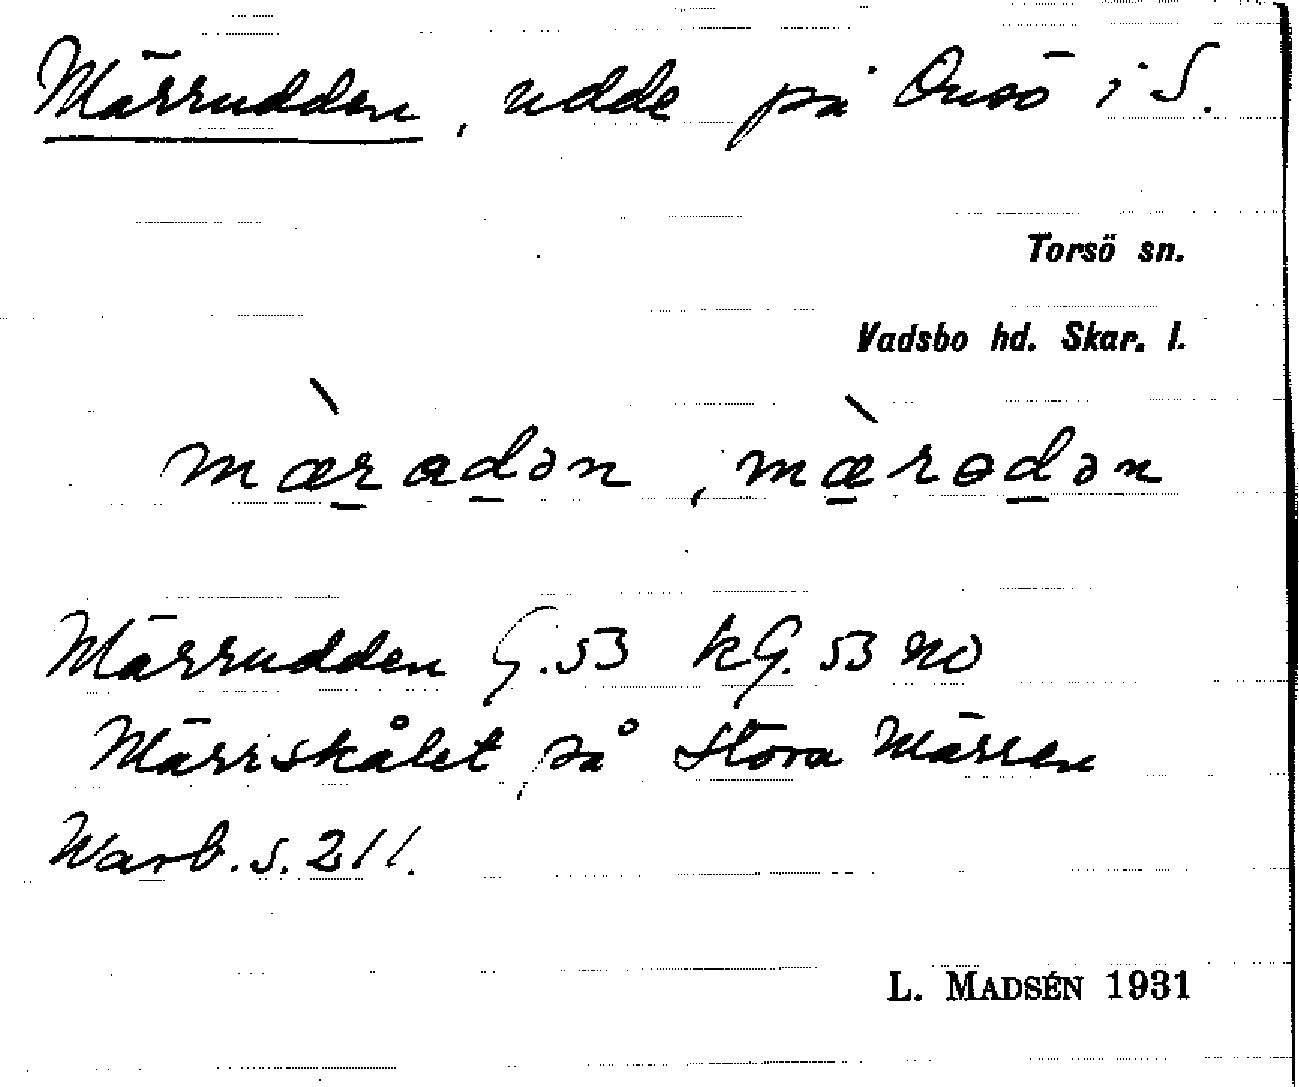 Märrudden, udde på Onsö i S.
Torsö sn.
Vadsbo hd. Skar. l.
mæ̀radən, mæ̀rədən
Märrudden G.53 kG. 53 NO
Märrskålet på Stora Märren
Warb. s. 211.
L. MADSÉN 1931